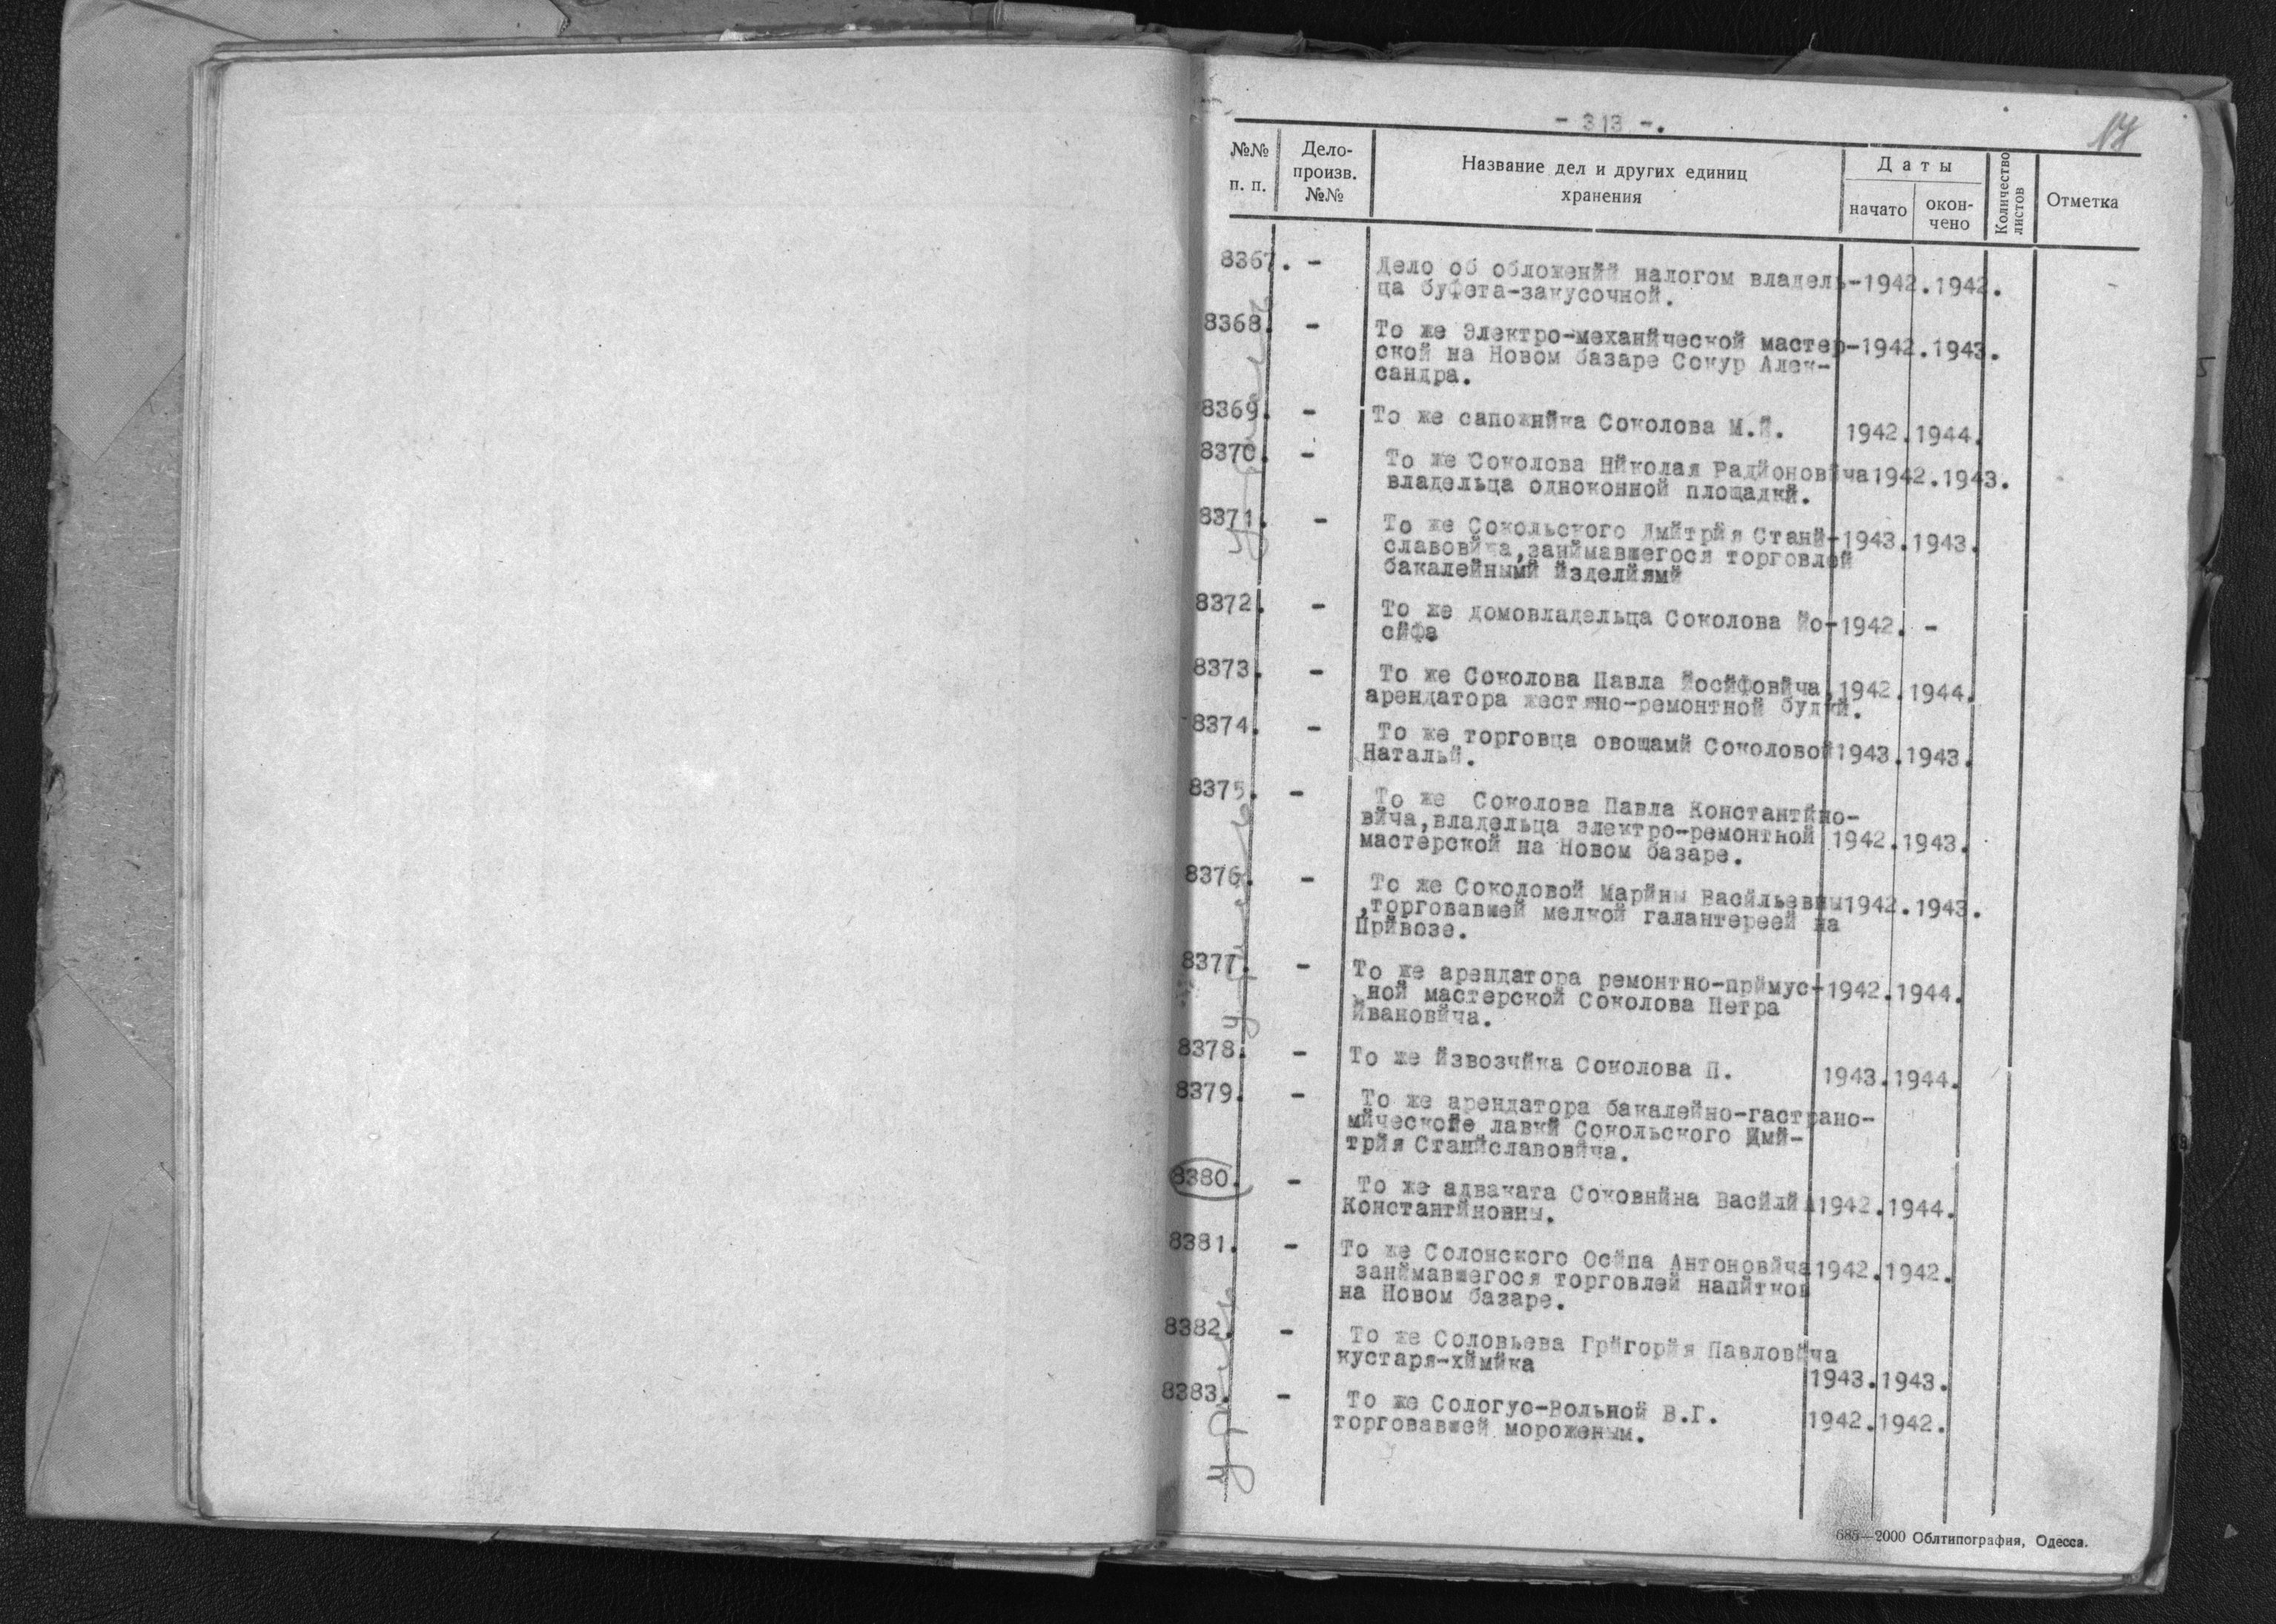 - 313 -.
17
№№ п. п.
Дело-
произв.
№№
Название дел и других единиц
хранения
Даты
начато
окон-
чено
Количество
листов
Отметка
8367. - Дело об обложенйй налогом владель-1942.1942.
ца буфета-закусочной.
8368. - То же Электро-механйческой мастер-1942.1943.
ской на Новом базаре Сокур Алек-
сандра.
8369. - То же сапожнйка Соколова М.Й. 1942.1944.
8370. - То же Соколова Нйколая Радйоновйча1942.1943.
владельца одноконной площадкй.
8371. - То же Сокольского Дмйтрйя Станй-1943.1943.
славовйча,занймавшегося торговлей
бакалейнымй йзделйямй
8372. - То же домовладельца Соколова Йо-1942. -
сйфа
8373. - То же Соколова Павла Йосйфовйча,1942.1944.
арендатора жестяно-ремонтной будкй.
8374. - То же торговца овощамй Соколовой1943.1943.
Натальй.
8375. - То же Соколова Павла Константйно-
вйча,владельца электро-ремонтной 1942.1943.
мастерской на Новом базаре.
8376. - То же Соколовой Марйны Васйльевны1942.1943.
,торговавшей мелкой галантереей на
Прйвозе.
8377. - То же арендатора ремонтно-прймус-1942.1944.
ной мастерской Соколова Петра
Йвановйча.
8378. - То же йзвозчйка Соколова П. 1943.1944.
8379. - То же арендатора бакалейно-гастрано-
мйческойе лавкй Сокольского Дмй-
трйя Станйславовйча.
8380. - То же адваката Соковнйна Васйлй 1942.1944.
Константйновны.
8381. - То же Солонского Осйпа Антоновйча1942.1942.
занймавшегося торговлей напйтков
на Новом базаре.
8382. - То же Соловьева Грйгорйя Павловйча
кустаря-хймйка 1943.1943.
8383. - То же Сологус-Вольной В.Г. 1942.1942.
торговавшей мороженым.
685—2000 Облтипография, Одесса.